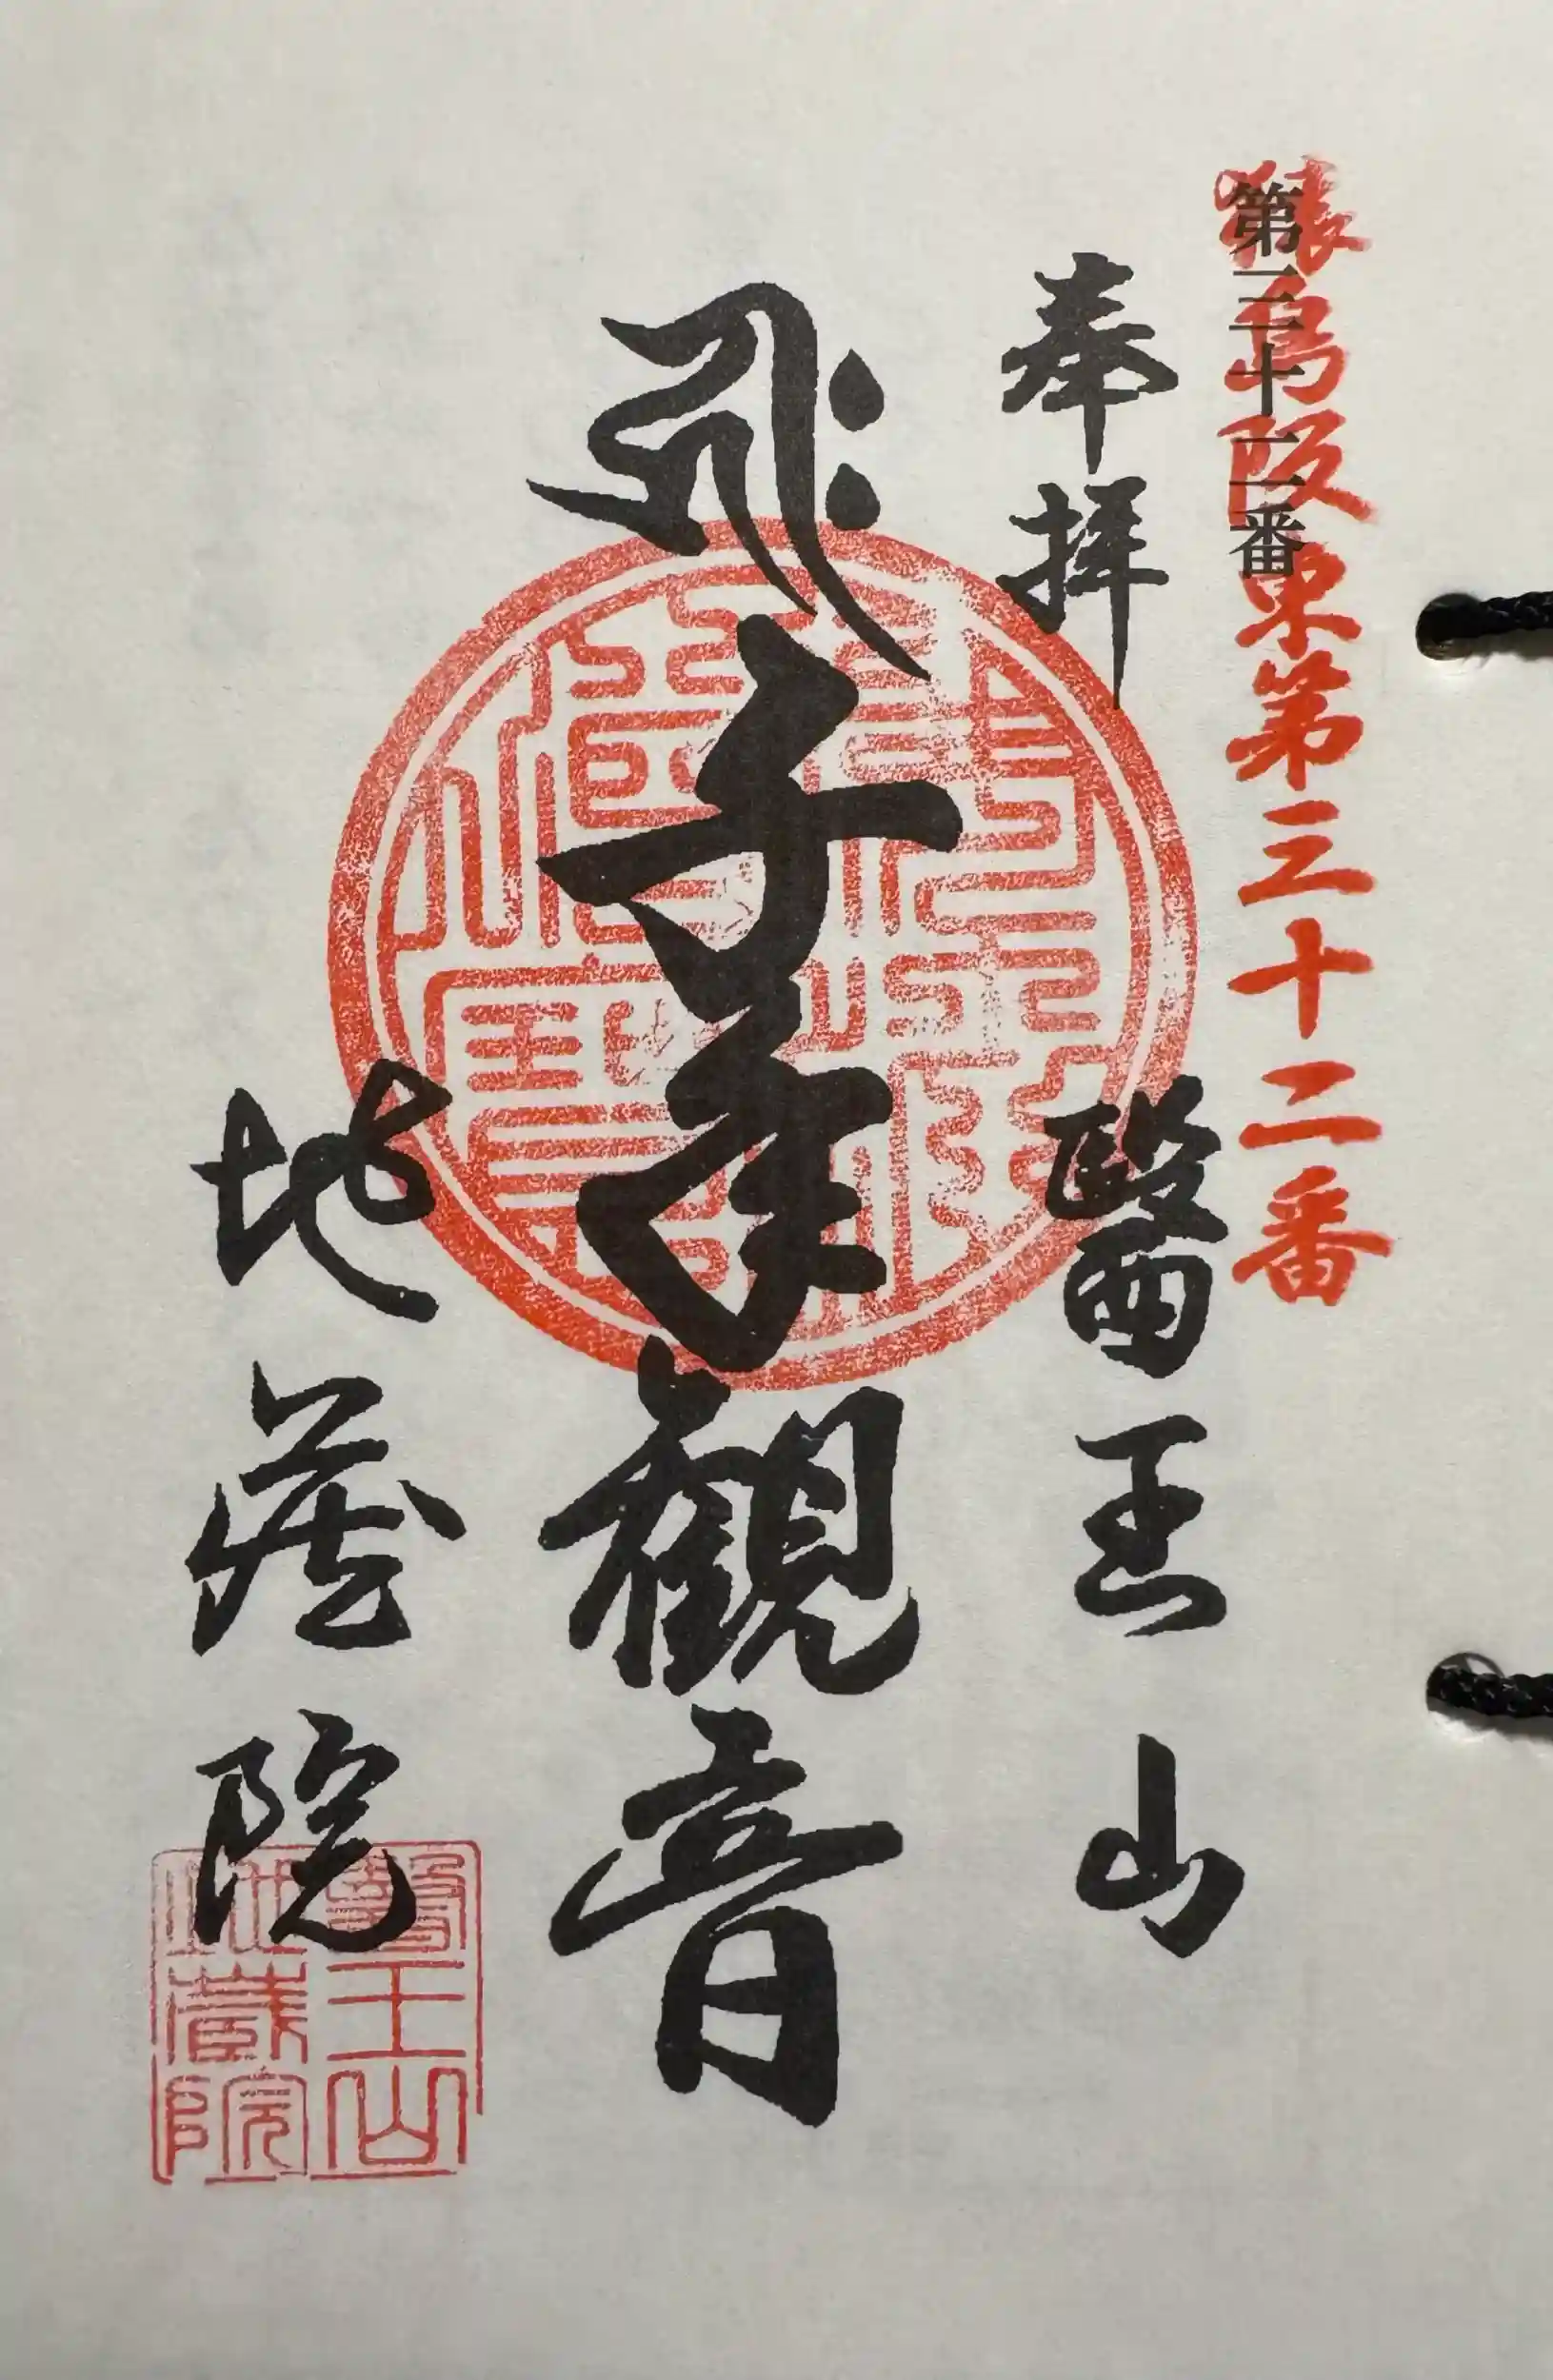 第三十二番
猿島阪東第三十二番
奉拝
醫王山
千手観音
地蔵院
醫王山
地蔵院